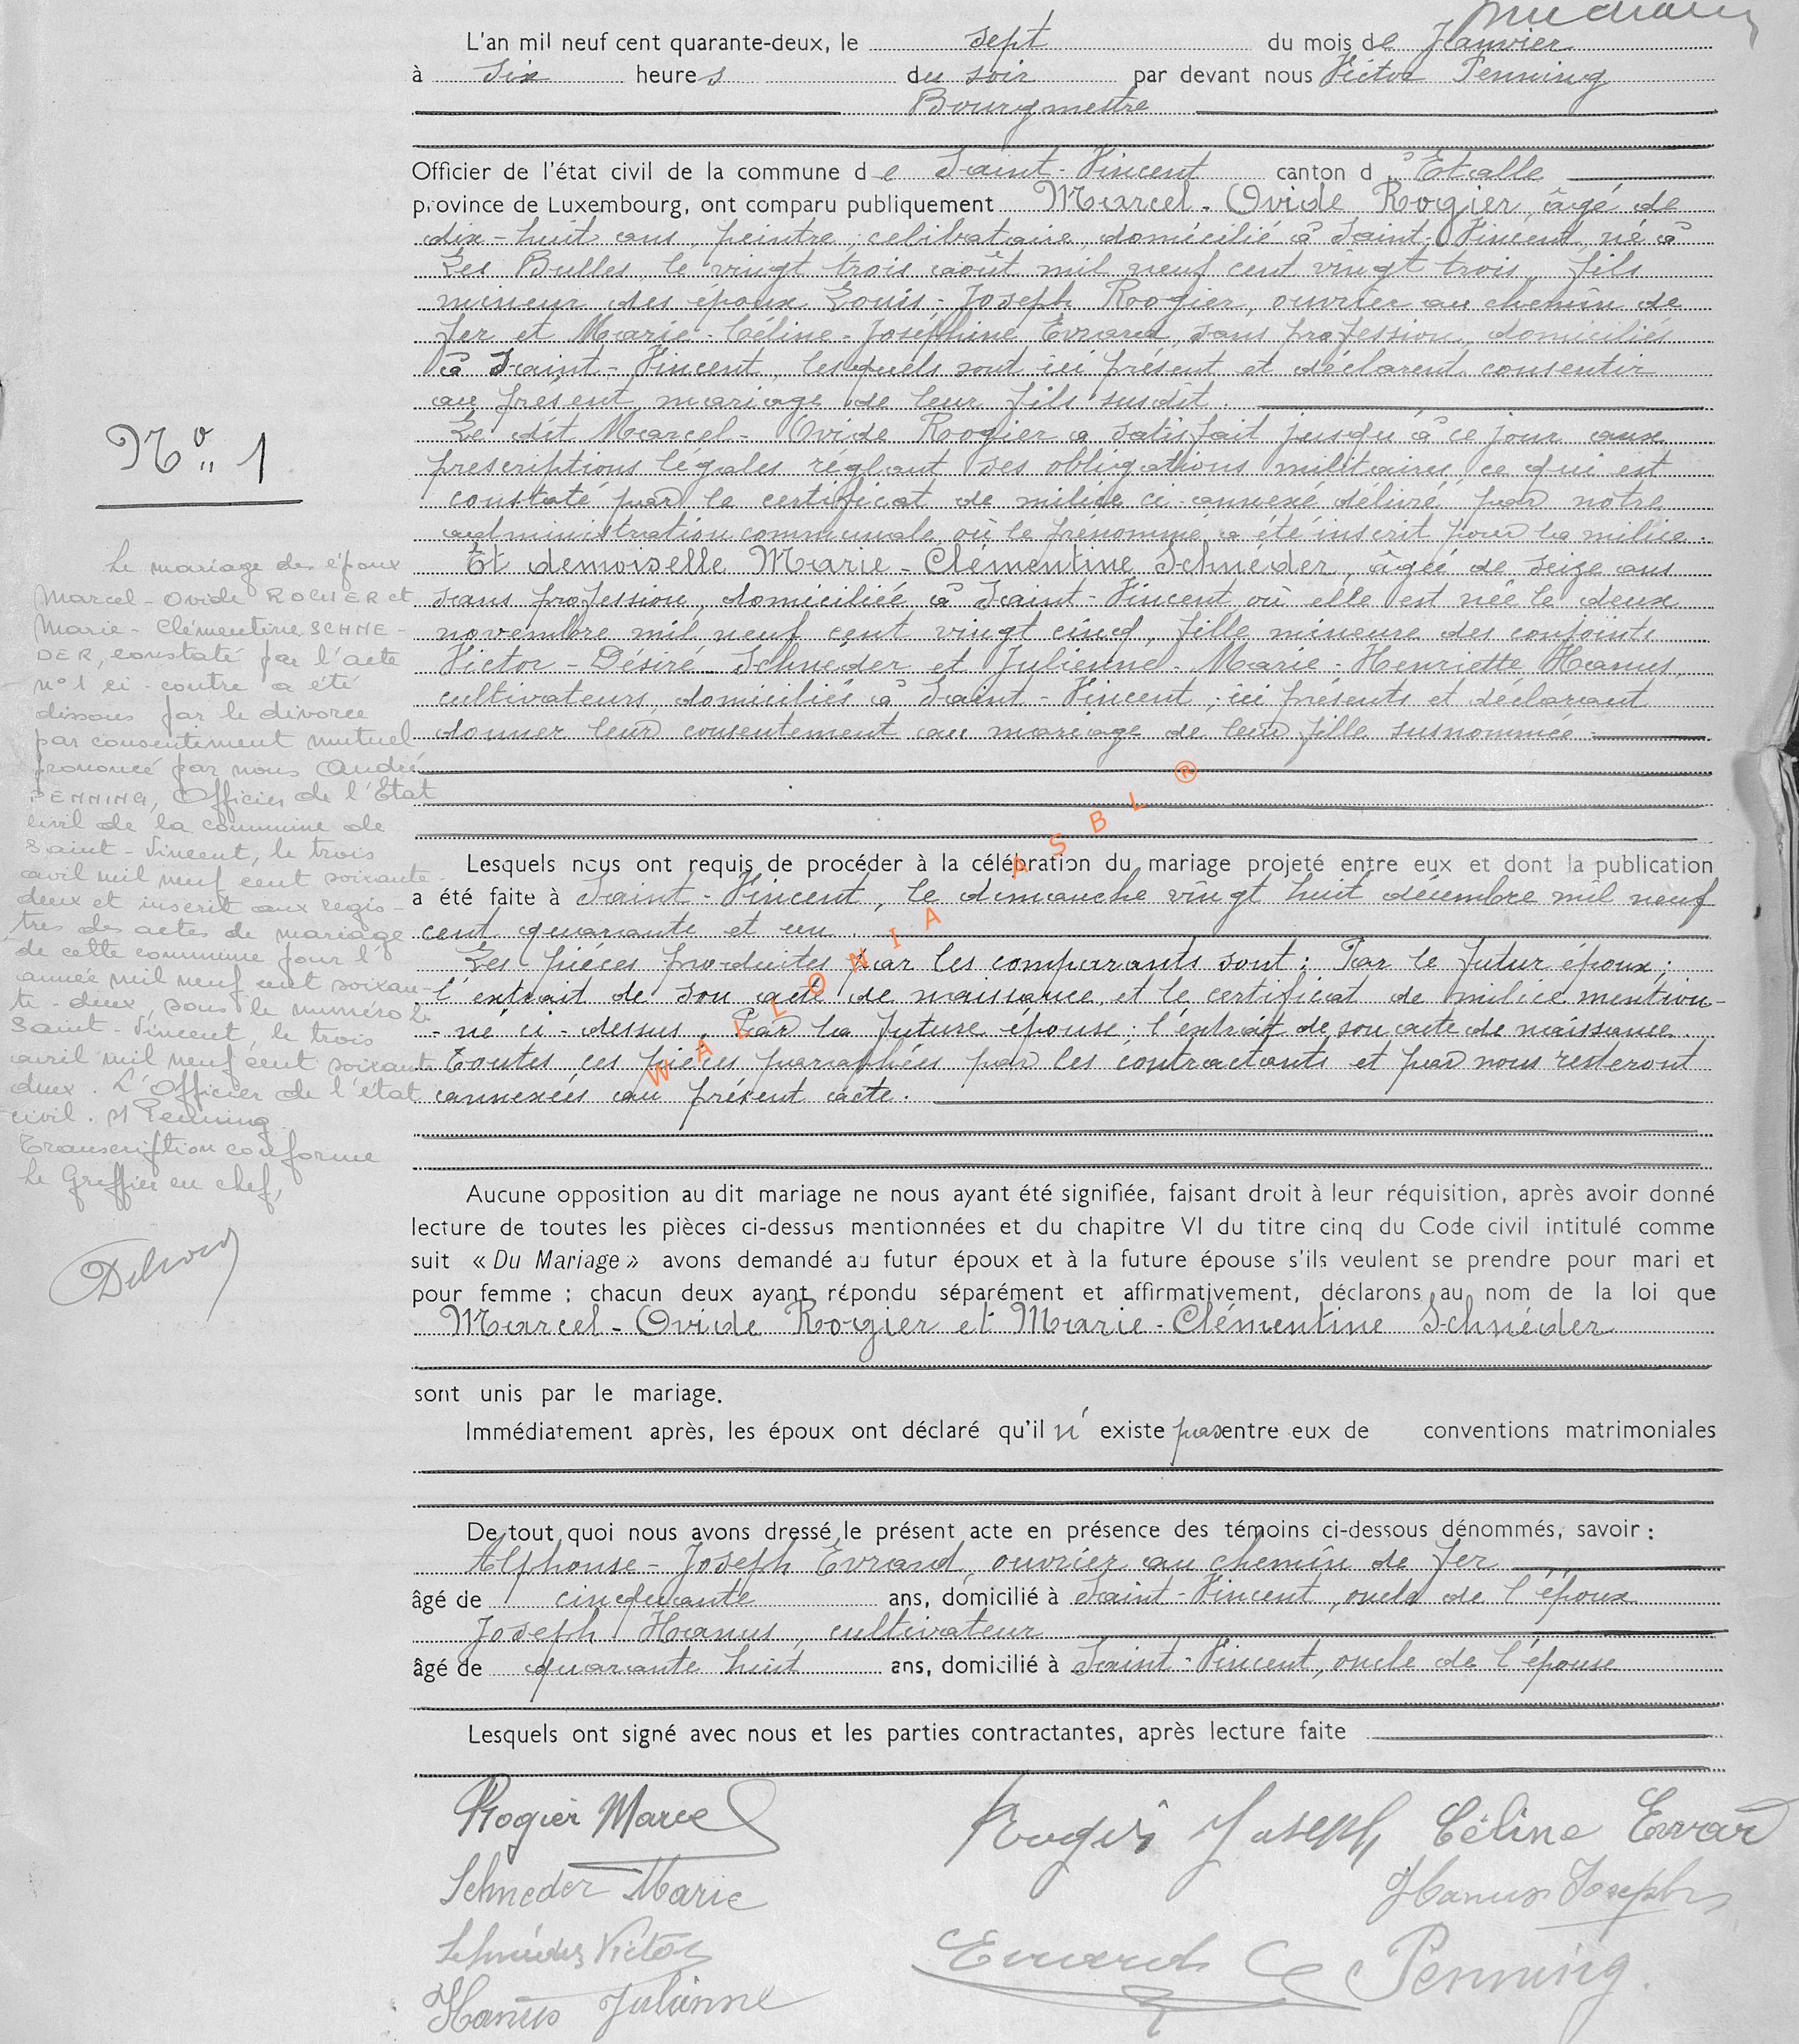 L'an mil neuf cent quarante-deux, le sept du mois de Janvier
à six heures du soir par devant nous Victor Penning
Bourgmestre
Officier de l'état civil de la commune de Saint-Vincent canton d'Etalle
province de Luxembourg, ont comparu publiquement Marcel-Ovide Rogier, âgé de
dix-huit ans, peintre, célibataire, domicilié à Saint-Vincent, né à
Les Bulles, le vingt trois août mil neuf cent vingt trois, fils
mineur des époux Louis-Joseph Rogier, ouvrier au chemin de
fer et Marie-Céline-Joséphine Evrard, sans profession, domiciliés
à Saint-Vincent, lesquels sont ici présent et déclarent consentir
au présent mariage de leur fils susdit.
Le dit Marcel-Ovide Rogier a satisfait jusqu'à ce jour aux
prescriptions légales réglant ses obligations militaires ce qui est
constaté par le certificat de milice ci-annexé délivré par notre
administration communale, où le prénommé a été inscrit pour la milice.
Et demoiselle Marie-Clémentine Schnéder, âgée de seize ans
sans profession, domiciliée à Saint-Vincent où elle est née le deux
novembre mil neuf cent vingt cinq, fille mineure des conjoints
Victor-Désiré Schnéder et Julienne-Marie-Henriette Hanus,
cultivateurs, domiciliés à Saint-Vincent, ici présents et déclarant
donner leur consentement au mariage de leur fille susnommée.
Lesquels nous ont requis de procéder à la célébration du mariage projeté entre eux et dont la publication
a été faite à Saint-Vincent, le dimanche vingt huit décembre mil neuf
cent quarante et un.
Les pièces produites par les comparants sont: Par le futur époux:
l'extrait de son acte de naissance, et le certificat de milice mention-
-né ci-dessus. Par la future épouse: l'extrait de son acte de naissance.
Toutes ces pièces paraphées par les contractants et par nous resteront
annexées au présent acte.
Aucune opposition au dit mariage ne nous ayant été signifiée, faisant droit à leur réquisition, après avoir donné
lecture de toutes les pièces ci-dessus mentionnées et du chapitre VI du titre cinq du Code civil intitulé comme
suit « Du Mariage » avons demandé au futur époux et à la future épouse s'ils veulent se prendre pour mari et
pour femme ; chacun deux ayant répondu séparément et affirmativement, déclarons au nom de la loi que
Marcel-Ovide Rogier et Marie-Clémentine Schnéder
sont unis par le mariage.
Immédiatement après, les époux ont déclaré qu'il n'existe pas entre eux de conventions matrimoniales
De tout quoi nous avons dressé le présent acte en présence des témoins ci-dessous dénommés, savoir :
Alphonse-Joseph Evrard, ouvrier au chemin de fer
âgé de cinquante ans, domicilié à Saint-Vincent, oncle de l'époux
Joseph Hanus, cultivateur
âgé de quarante huit ans, domicilié à Saint-Vincent, oncle de l'épouse
Lesquels ont signé avec nous et les parties contractantes, après lecture faite
Rogier Marcel
Rogier Joseph Céline Evrar
Schneder Marie
Hanus Joseph
Schnéder Victor
Evrard
Penning.
Hanus Julienne
No 1
Le mariage des époux
Marcel-Ovide ROGIER et
Marie-Clémentine SCHNE-
DER, constaté par l'acte
n° 1 ci-contre a été
dissous par le divorce
par consentement mutuel
prononcé par nous André
PENNING, Officier de l'Etat
civil de la commune de
Saint-Vincent, le trois
avril mil neuf cent soixante-
deux et inscrit aux regis-
tres des actes de mariage
de cette commune pour l'
année mil neuf cent soixan-
te-deux, sous le numéro 2
Saint-Vincent, le trois
avril mil neuf cent soixante
deux. L'Officier de l'état
civil. s/ Penning
Transcription conforme
Le Greffier en chef,
WALLONIA ASBL ®